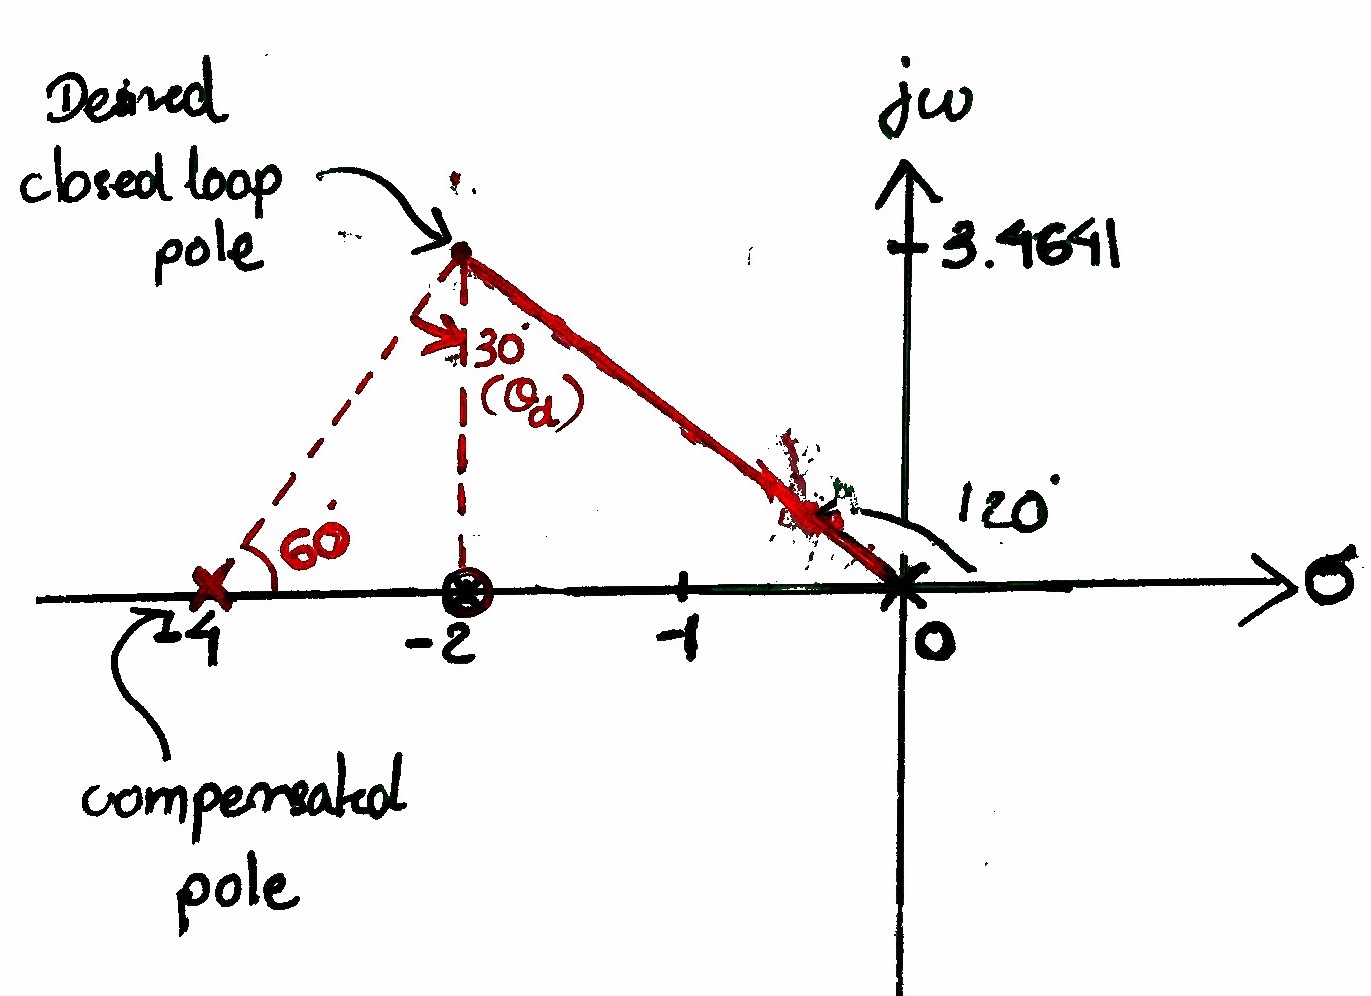 Desired
closed loop
pole
jω
3.4641
30°
(θd)
120°
60°
σ
-4
-2
-1
0
compensated
pole